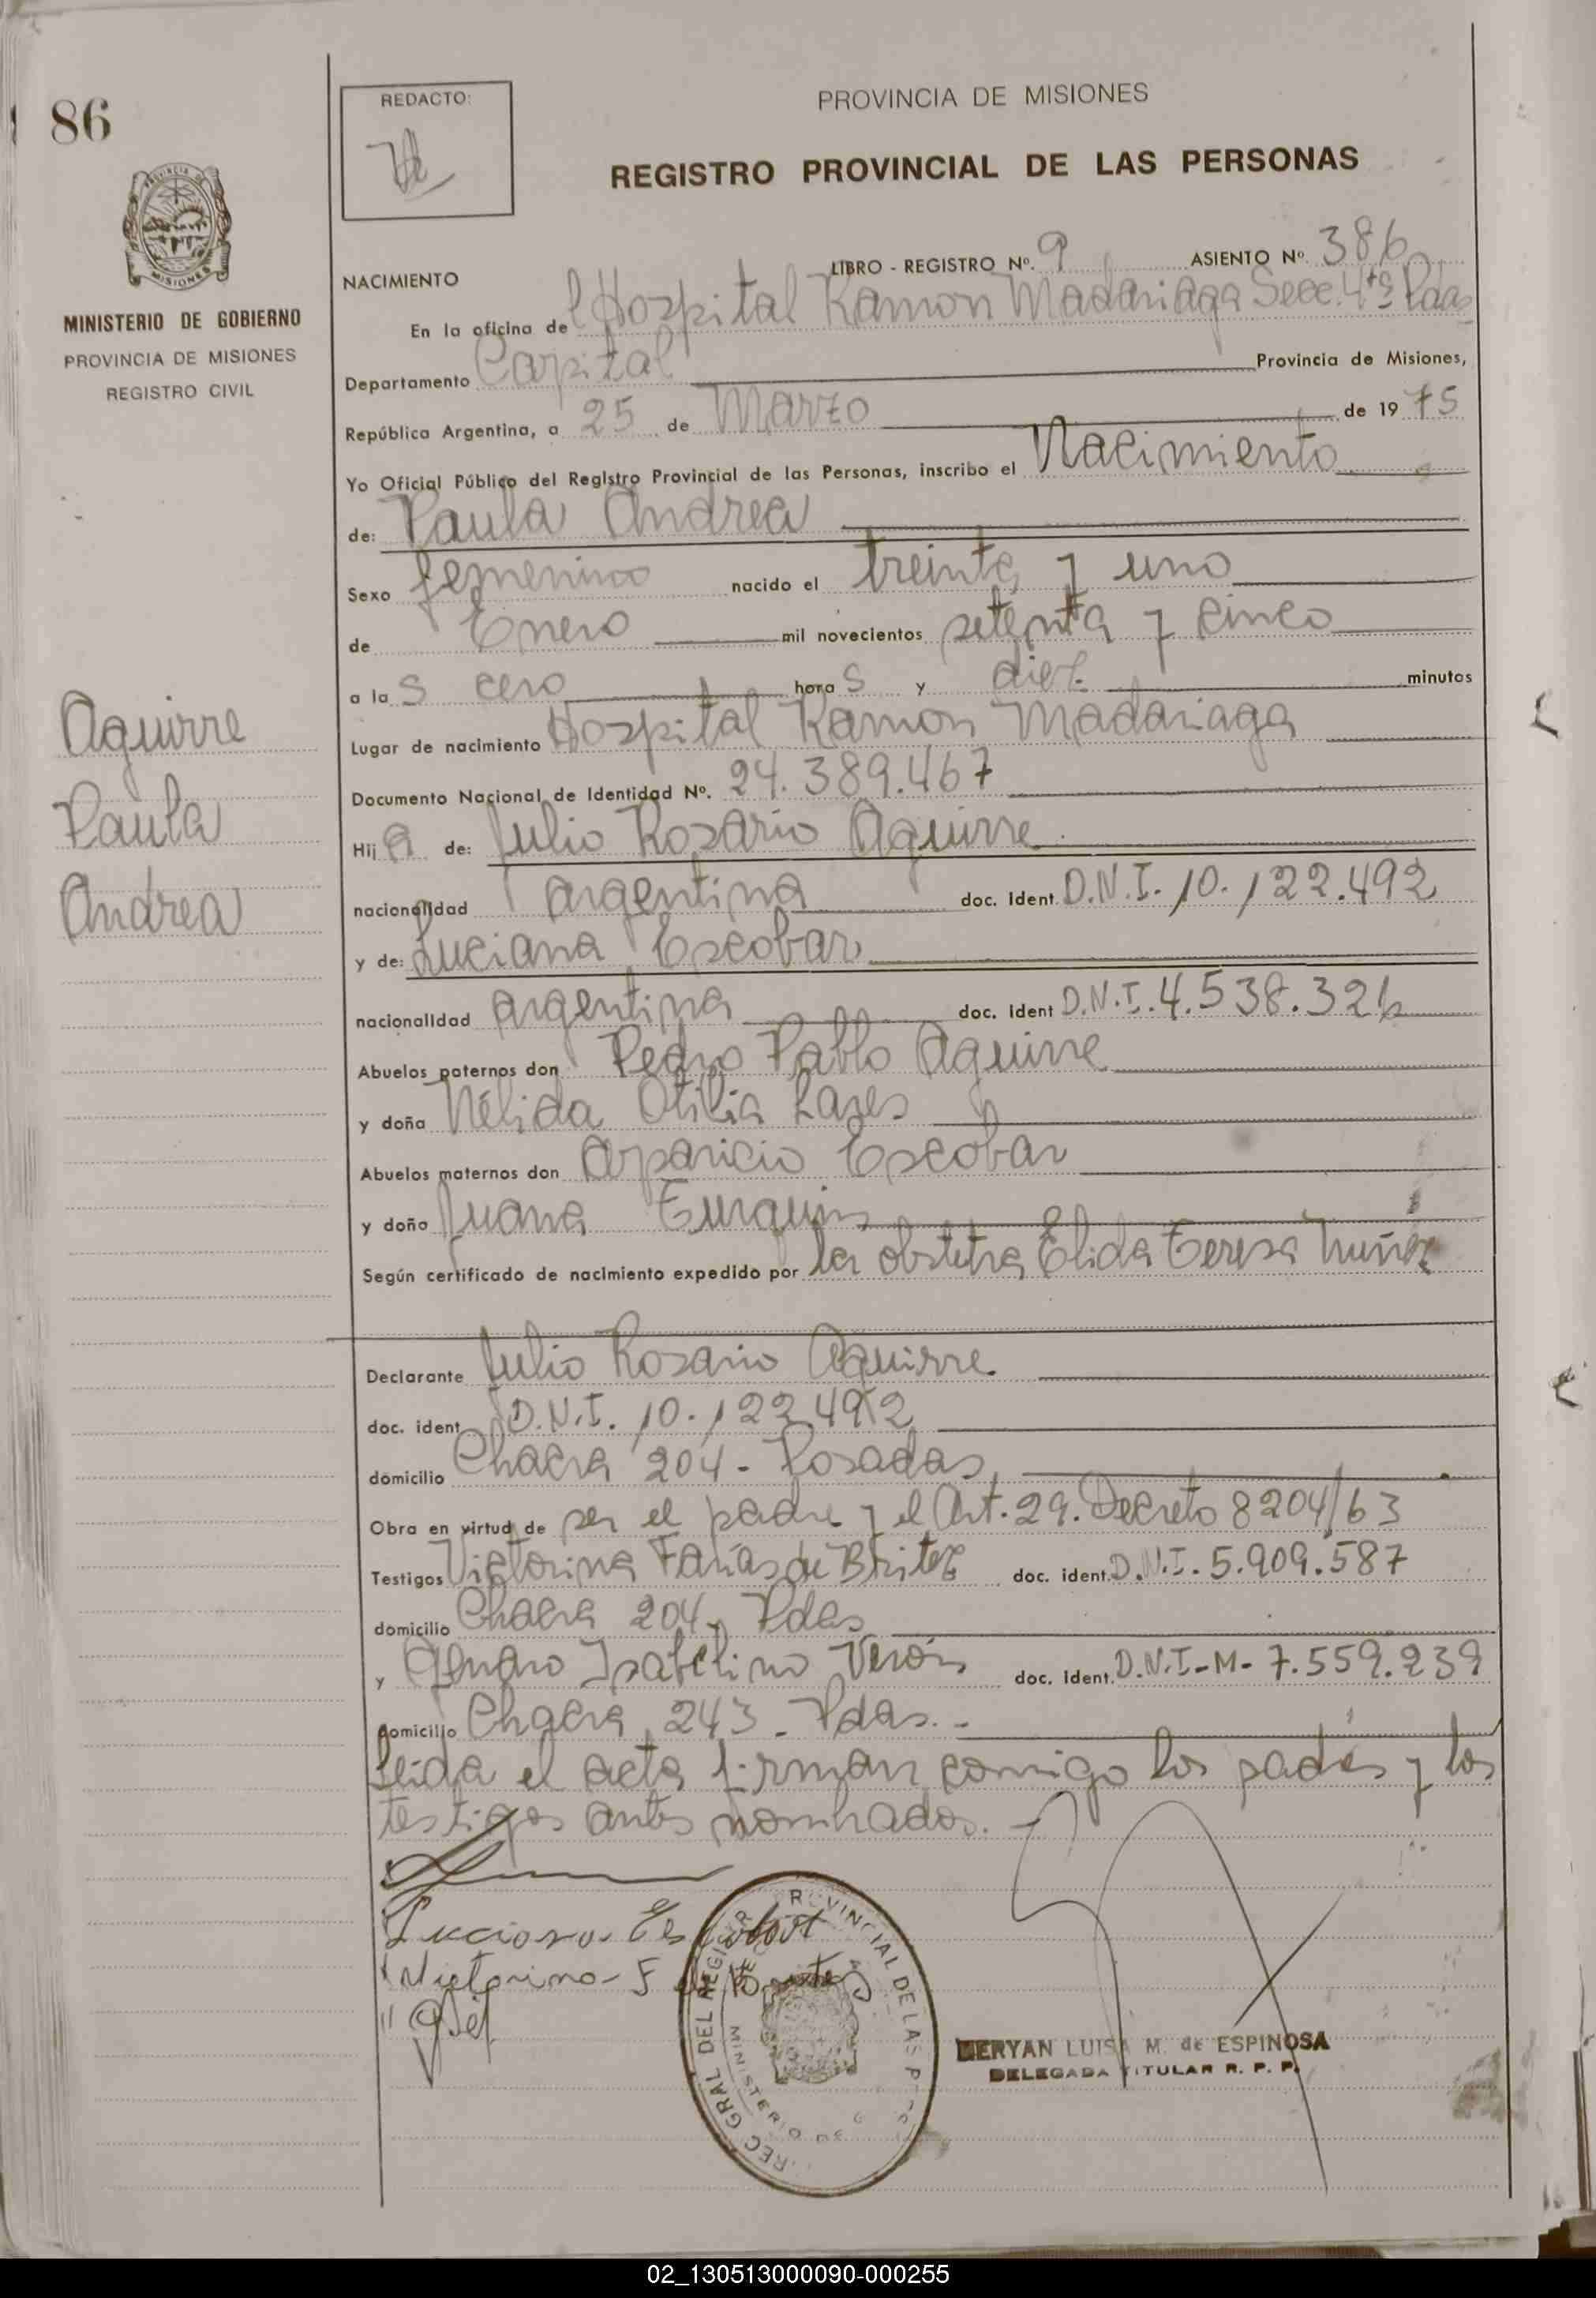 86
MINISTERIO DE GOBIERNO
PROVINCIA DE MISIONES
REGISTRO CIVIL
Aguirre
Paula
Andrea
REDACTO:
PROVINCIA DE MISIONES
REGISTRO PROVINCIAL DE LAS PERSONAS
NACIMIENTO LIBRO - REGISTRO Nº. 9 ASIENTO Nº. 386
En la oficina del Hospital Ramon Madariaga Secc. 4ta Pdas
Departamento Capital Provincia de Misiones,
República Argentina, a 25 de Marzo de 1975
Yo Oficial Público del Registro Provincial de las Personas, inscribo el Nacimiento
de: Paula Andrea
Sexo femenino nacido el treinta y uno
de Enero mil novecientos setenta y cinco
a las cero horas y diez minutos
Lugar de nacimiento Hospital Ramon Madariaga
Documento Nacional de Identidad Nº. 24.389.467
Hija de: Julio Rosario Aguirre
nacionalidad argentina doc. Ident. D.N.I. 10.122.492
y de: Luciana Escobar
nacionalidad argentina doc. Ident D.N.I. 4.538.326
Abuelos paternos don Pedro Pablo Aguirre
y doña Nélida Otilia
Abuelos maternos don Aparicio Escobar
y doña Juana
Según certificado de nacimiento expedido por la obstetra Elida Teresa Nuñez
Declarante Julio Rosario Aguirre
doc. ident. D.N.I. 10.122.492
domicilio Chacra 204 - Posadas
Obra en virtud de ser el padre y el Art. 29. Decreto 8204/63
Testigos Victorina Farias de Britez doc. ident. D.N.I. 5.909.587
domicilio Chacra 204 - Pdas
y Genaro Isabelino Verón doc. ident. D.N.I-M- 7.559.239
domicilio Chacra 243 - Pdas.-
Leida el acta firman comigo los padres y los
testigos antes nombrados.-
Luciana Escobar
Victorina F de Britez
REC GRAL DEL REGISTR PROVINCIAL DE LAS P
MINISTERIO DE G
MERYAN LUISA M. de ESPINOSA
DELEGADA TITULAR R. P. P.
02_130513000090-000255